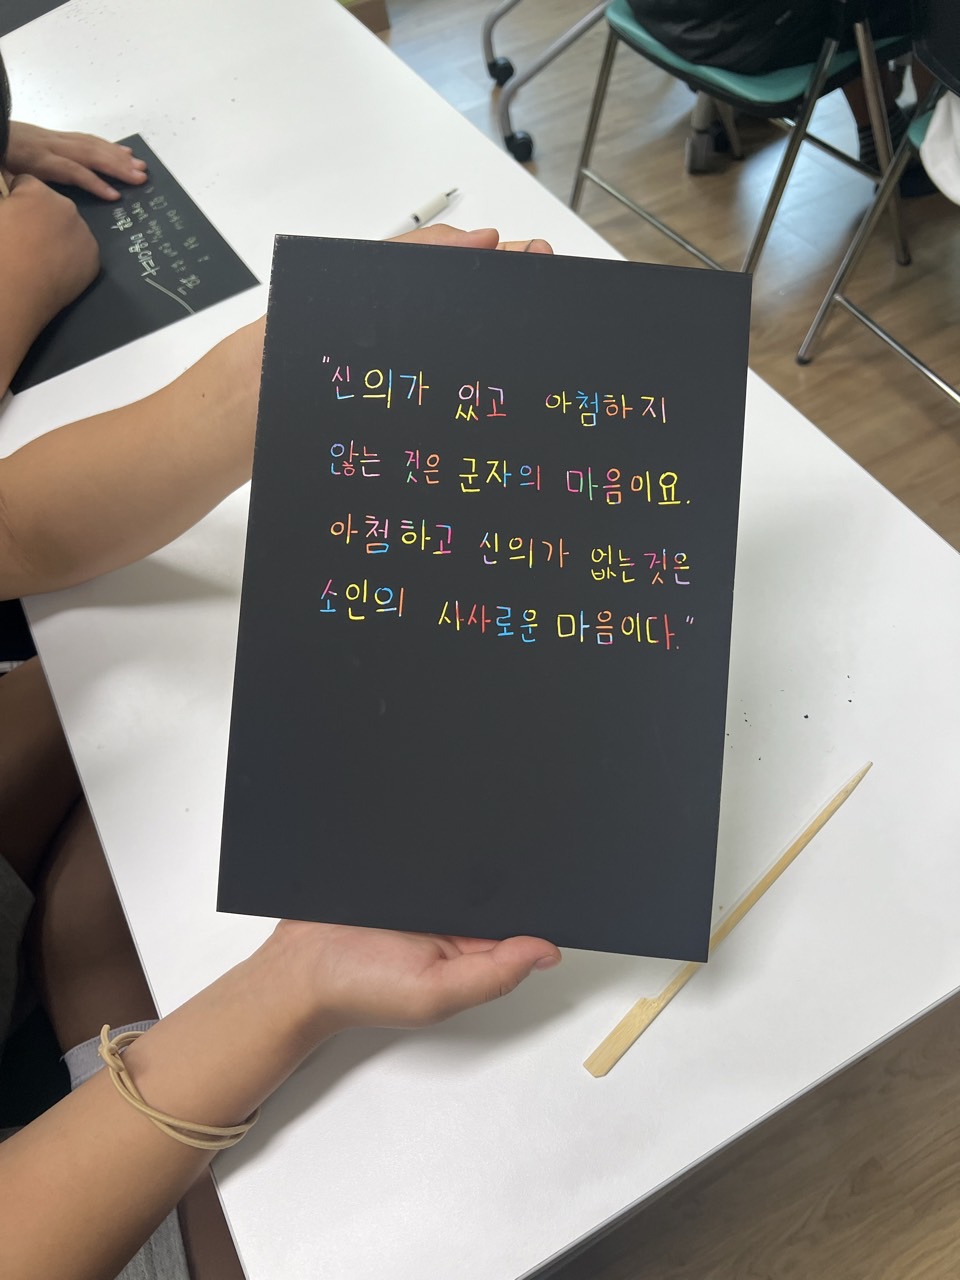 "신의가 있고 아첨하지
않는 것은 군자의 마음이요.
아첨하고 신의가 없는것은
소인의 사사로운 마음이다."
마음이다